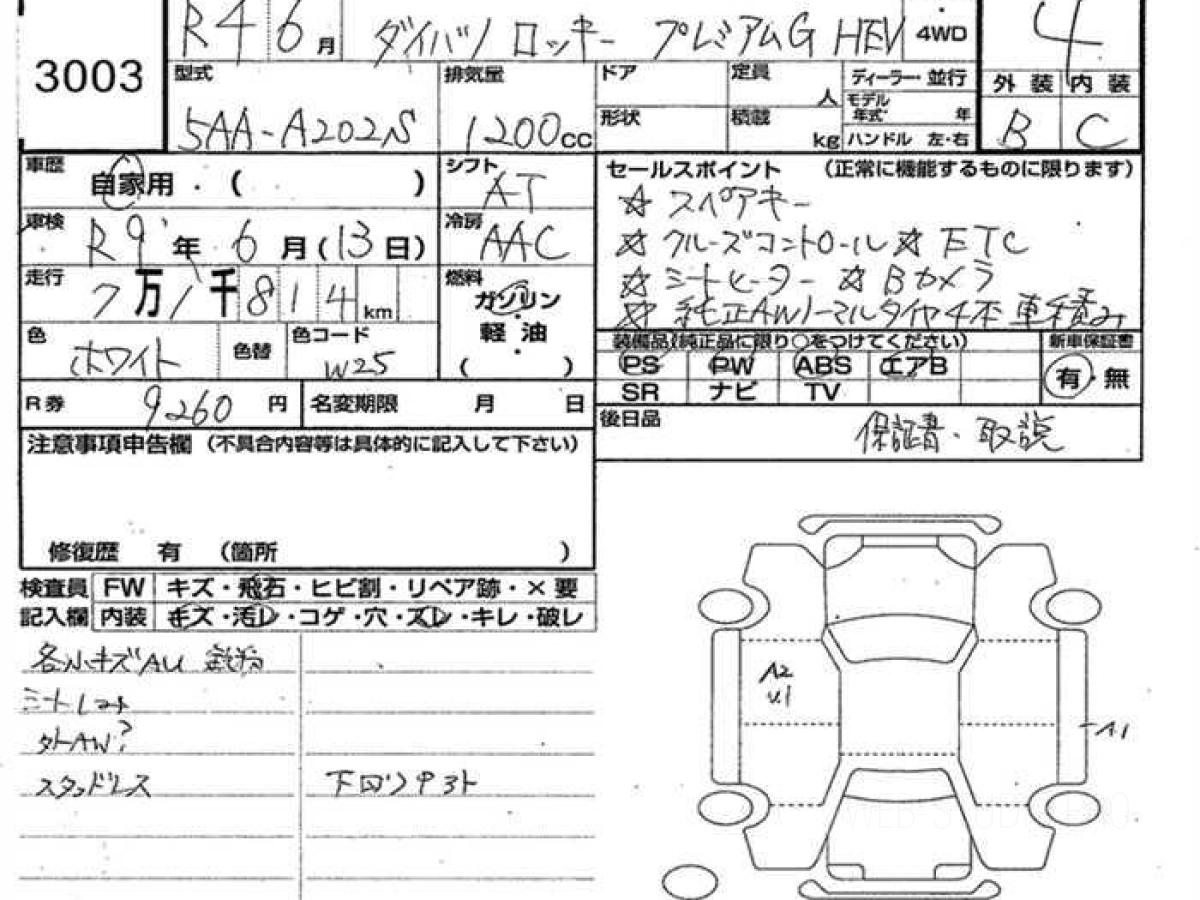 3003
R4 6月 ダイハツ ロッキー プレミアムG HEV 4WD 4
型式 5AA-A202S
排気量 1200cc
ドア
定員 人
ディーラー・並行
外装 内装
形状
積載 kg
モデル年式 年
ハンドル 左・右
B C
車歴 自家用・( )
シフト AT
セールスポイント (正常に機能するものに限ります)
☆ スペアキー
車検 R9年6月(13日)
冷房 AAC
☆ クルーズコントロール ☆ ETC
走行 7万1千814km
燃料 ガソリン・軽油・( )
☆ シートヒーター ☆ Bカメラ
☆ 純正AWノーマルタイヤ4本 車積み
色 ホワイト 色替 色コード W25
装備品(純正品に限り○をつけてください)
新車保証書
PS PW ABS エアB
有・無
SR ナビ TV
R券 9260円
名変期限 月 日
後日品 保証書・取説
注意事項申告欄 (不具合内容等は具体的に記入して下さい)
修復歴 有 (箇所 )
検査員記入欄
FW キズ・飛石・ヒビ割・リペア跡・×要
内装 キズ・汚レ・コゲ・穴・スレ・キレ・破レ
各小キズAU 鉄粉
シート
外AW?
スタッドレス
下回り
A2
A1